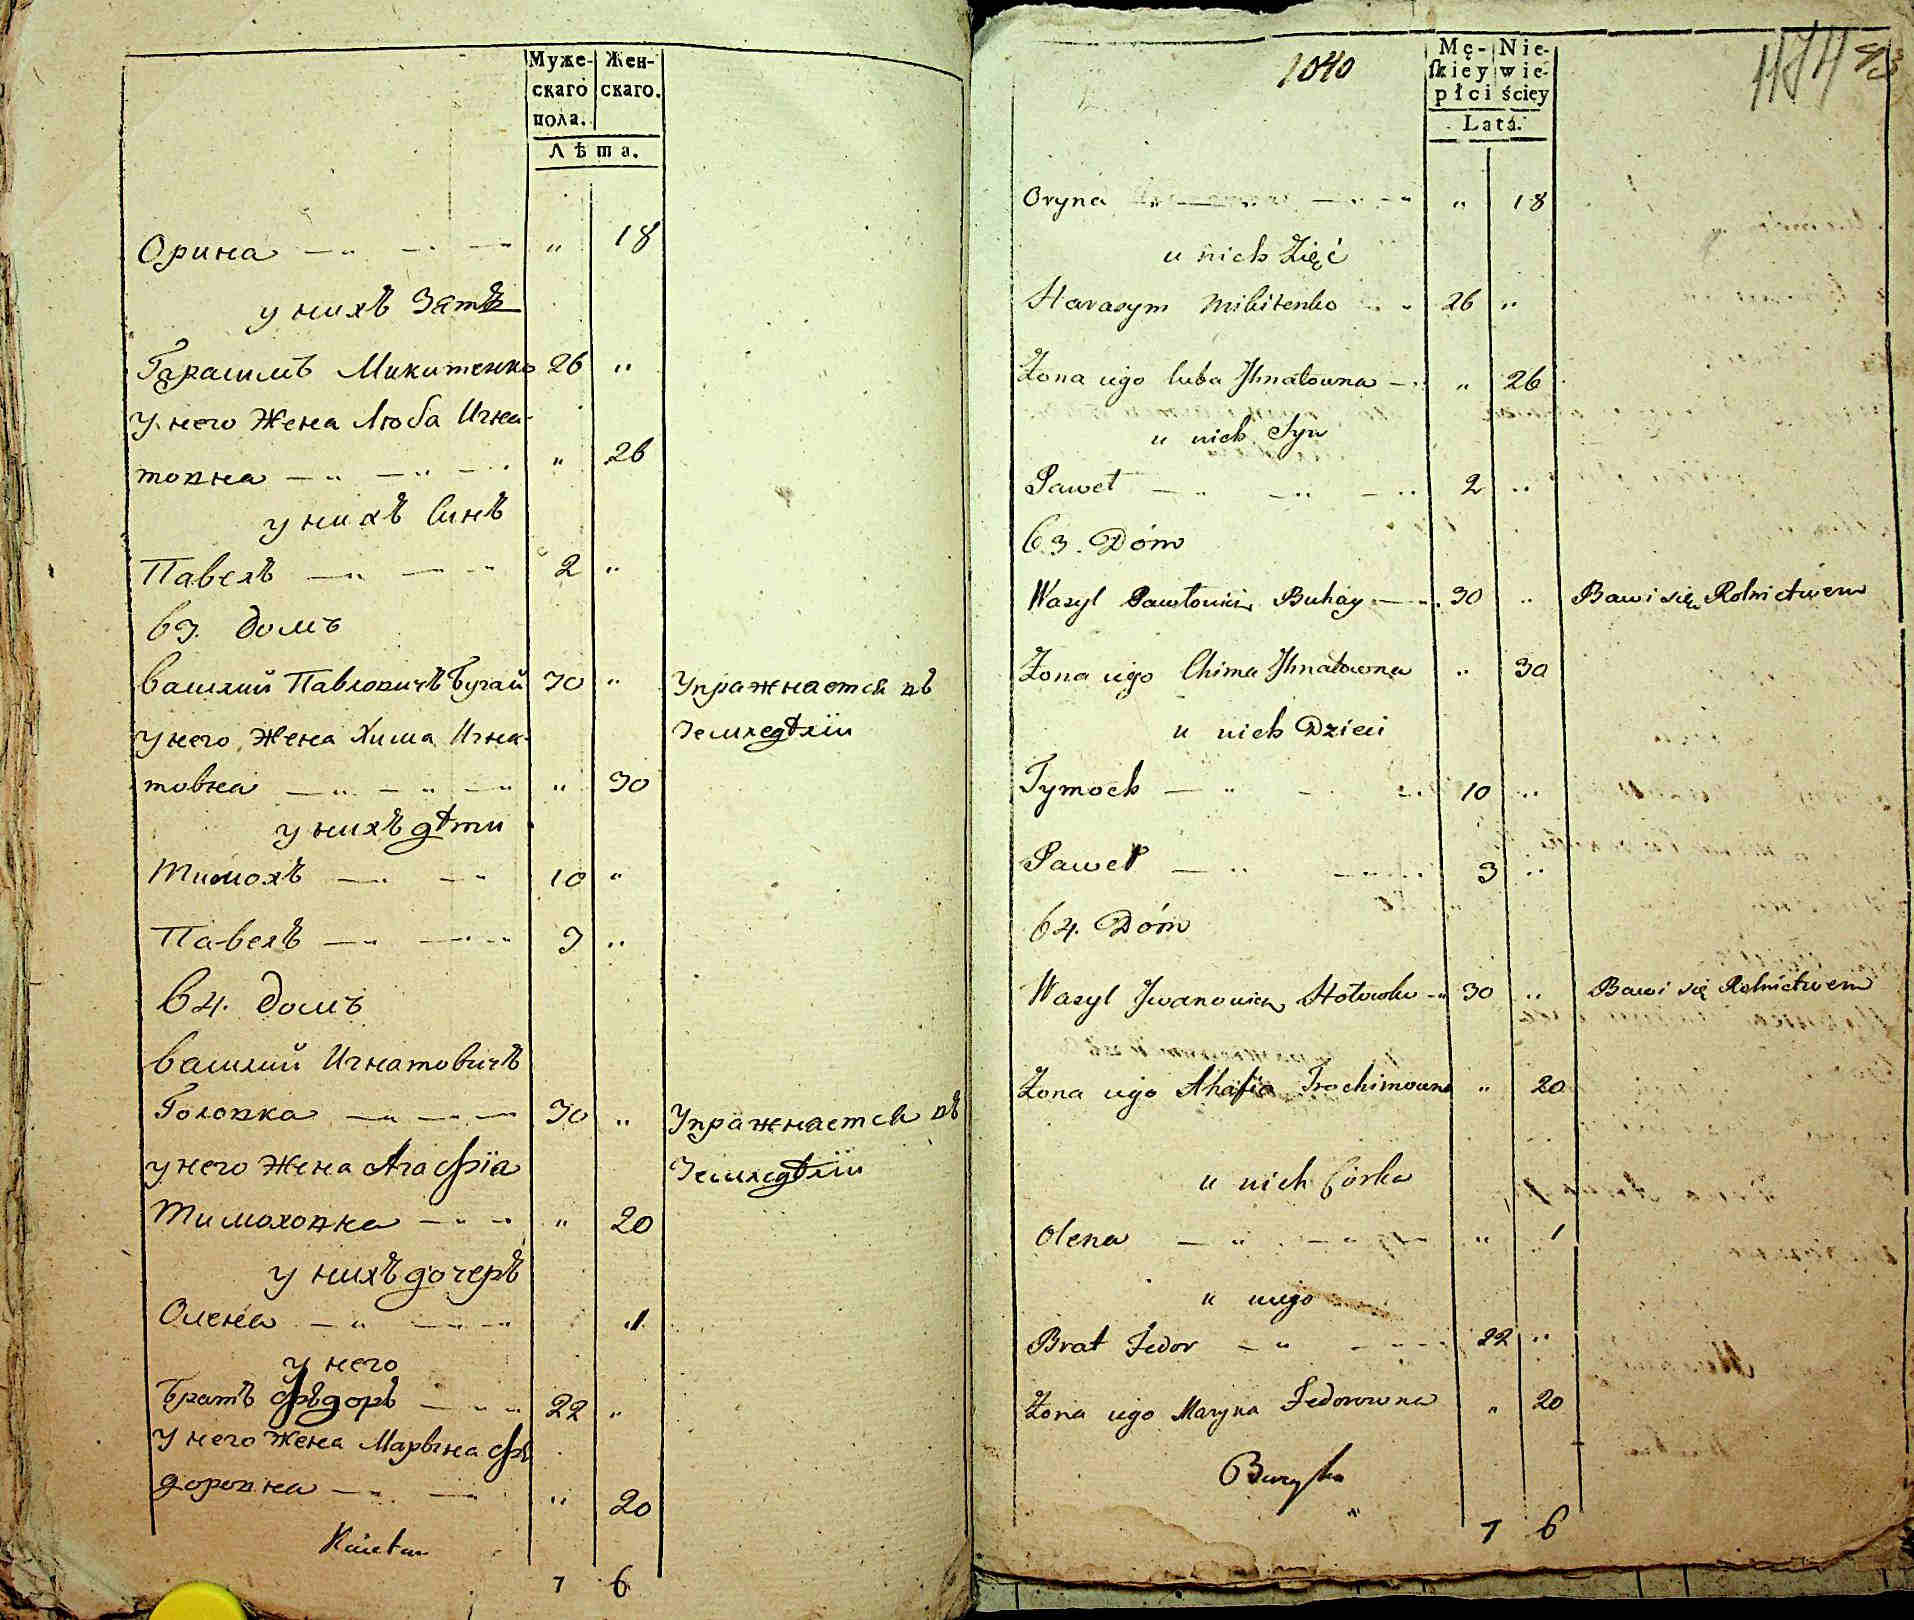 Муже- Жен-
скаго скаго.
пола.
Лѣта.
Орина — „ — „ — „ 18
у нихъ Зять
Гарасимъ Микитенко 26 „
у него Жена Люба Игна-
товна — „ — „ — „ 26
у нихъ Синъ
Павелъ — „ — „ 2 „
63. домъ
Василий Павловичъ Бугай 30 „ Упражнается въ
у него Жена Хима Игна- Земледѣлїи
товна — „ — „ — „ 30
у нихъ дѣти
Тимохъ — „ — „ 10 „
Павелъ — „ — „ 3 „
64. домъ
Василий Игнатовичъ
Головка — „ — „ 30 „ Упражнается въ
у него Жена Агафїа Земледѣлїи
Тимоховка — „ — „ 20
у нихъ дочеръ
Олена — „ — „ 1
у него
Братъ Фѣдоръ — „ 22 „
у него Жена Марьина Фѣ
доровна — „ — „ 20
7 6
1040
Mę- Nie-
ſkiey wie-
płci ściey
Lata.
474
Oryna — „ — „ 18
u nich Zięć
Harasym Mikitenko 26 „
Żona iego Luba Jhnatowna — „ 26
u nich Syn
Paweł — „ — „ 2 „
63. Dóm
Wasyl Pawłowicz Buhay — 30 „ Bawi się Rolnictwem
Żona iego Chima Jhnatowna „ 30
u nich Dzieci
Tymoch — „ — „ 10 „
Paweł — „ — „ 3 „
64. Dóm
Wasyl Jwanowicz Hołowko — 30 „ Bawi się Rolnictwem
Żona iego Ahafia Trochimowna „ 20
u nich Córka
Olena — „ — „ 1
u niego
Brat Fedor — „ — 22 „
Żona iego Maryna Fedorowna „ 20
7 6